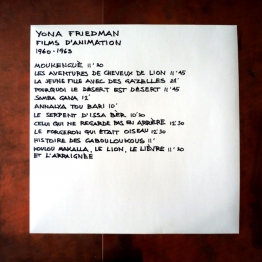 YONA FRIEDMAN
FILMS D'ANIMATION
1960-1963
MOUKENGUÉ 11'30
LES AVENTURES DE CHEVEUX DE LION 11'45
LA JEUNE FILLE AVEC DES GAZELLES 28'
POURQUOI LE DÉSERT EST DÉSERT 11'45
SAMBA GANA 12'
ANNALYA TOU BARI 10'
LE SERPENT D'ISSA BÉR 10'30
CELUI QUI NE REGARDE PAS EN ARRIÈRE 12'30
LE FORGERON QUI ÉTAIT OISEAU 12'30
HISTOIRE DES GABOULOUKOUS 11'
POULOU MAKALLA, LE LION, LE LIÈVRE 11'30
ET L'ARRAIGNÉE